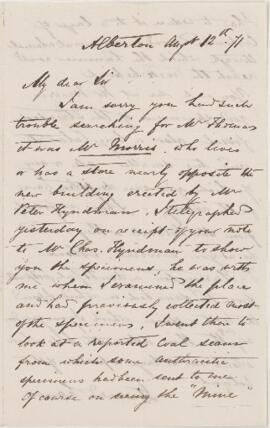 Alberton Augt 12th 71
My dear Sir
I am sorry you had such
trouble searching for Mr Thomas
it was Mr Morris who lives
or has a store nearly opposite the
new building erected by Mr
Peter Hyndman, I telegraphed
yesterday on receipt of your note
to Mr Chas. Hyndman to show
you the specimens, he was with
me when I examined the place
and had previously collected most
of the specimens, I went then to
look at a reported Coal seam
from which some authentic
specimens had been sent to me
of course on seeing the "Mine"